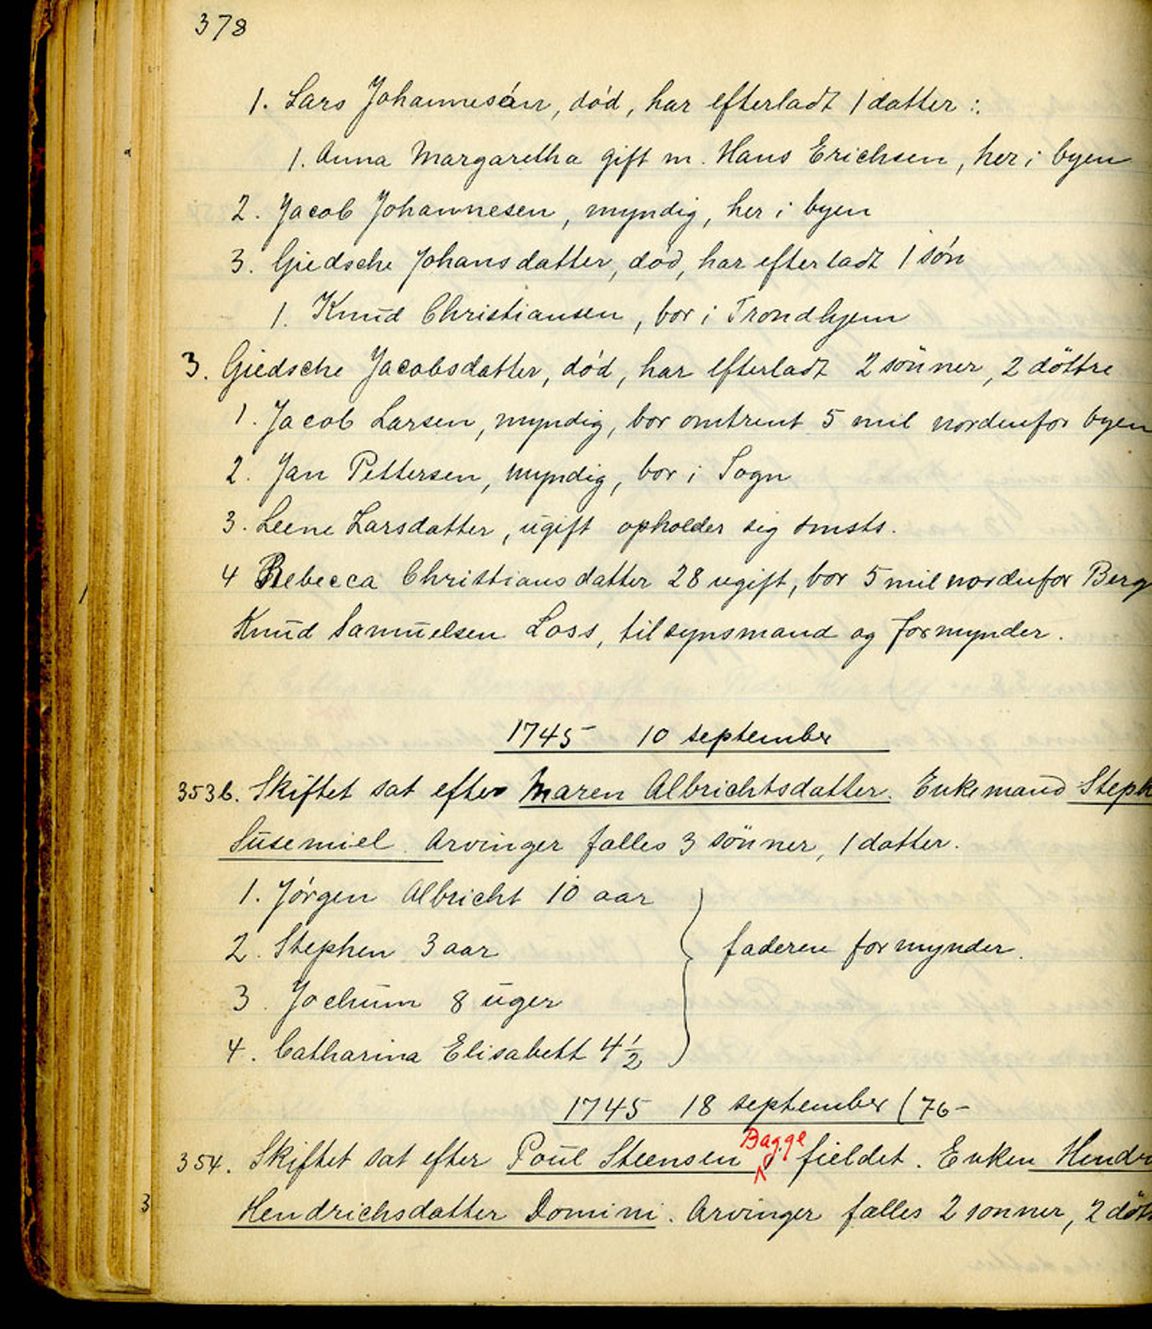 378
1. Lars Johannesen, død, har efterladt 1 datter :
1. Anna Margaretha gift m. Hans Erichsen, her i byen
2. Jacob Johannesen, myndig, her i byen
3. Giedsche Johansdatter, død, har efterladt 1 søn
1. Knud Christiansen, bor i Trondhjem
3. Giedsche Jacobsdatter, død, har efterladt 2 sönner, 2 döttre
1. Jacob Larsen, myndig, bor omtrent 5 mil nordenfor byen
2. Jan Pettersen, myndig, bor i Sogn
3. Leene Larsdatter, ugift opholder sig smsts.
4 Rebecca Christiansdatter 28 ugift, bor 5 mil nordenfor Berg
Knud Samuelsen Loss, tilsynsmand og formynder.
1745 10 september
353b. Skiftet sat efter Maren Albrichtsdatter. Enkemand Steph
Susemiel. Arvinger falles 3 sönner, 1 datter.
1. Jørgen Albricht 10 aar
2. Stephen 3 aar
faderen formynder.
3. Jochum 8 uger
4. Catharina Elisabett 4½
1745 18 september (76-
354. Skiftet sat efter Poul Steensen Bagge fieldet. Enken Hendri
Hendrichsdatter Domini. Arvinger falles 2 sonner, 2 døt
3